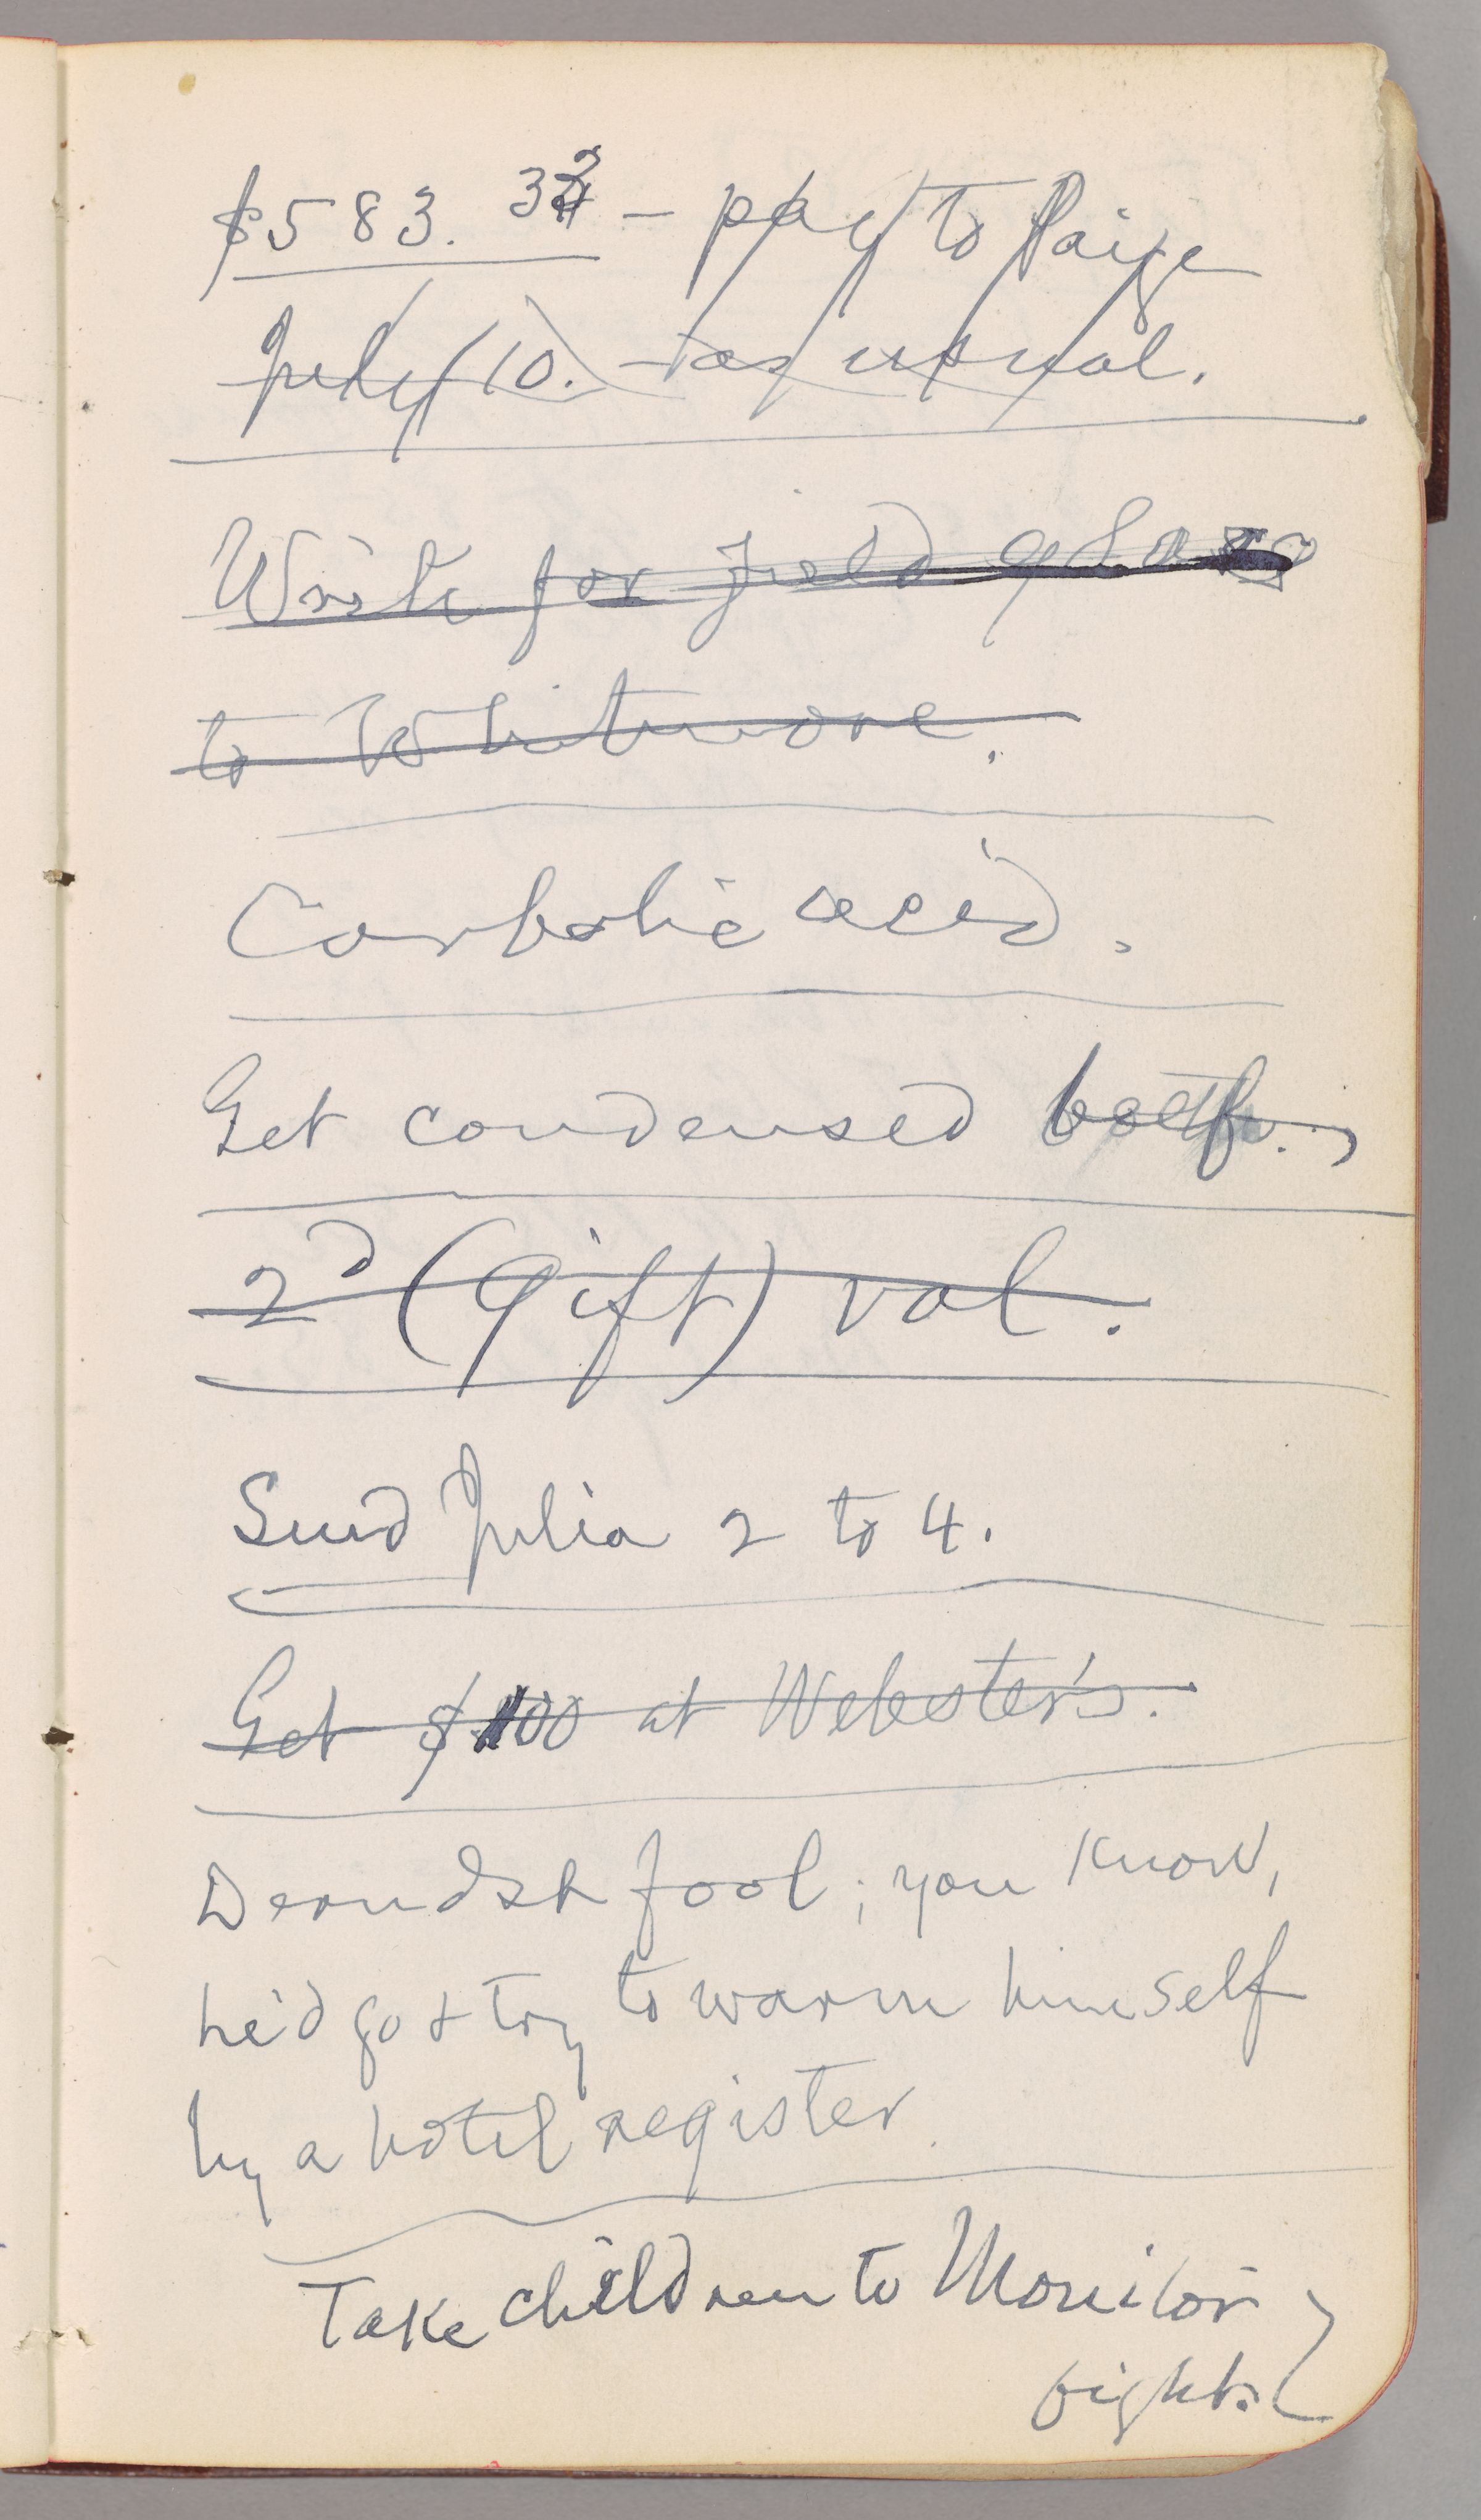 $583. 33 — pay to Paige
July 10. — as usual.
Write for field glass
to Whitmore.
Carbolic acid.
Get condensed beef.
2d (Gift) vol.
Send Julia 2 to 4.
Get $100 at Webster's.
Derndest fool; you know,
he'd go & try to warm himself
by a hotel register.
Take children to Monitor
fight.